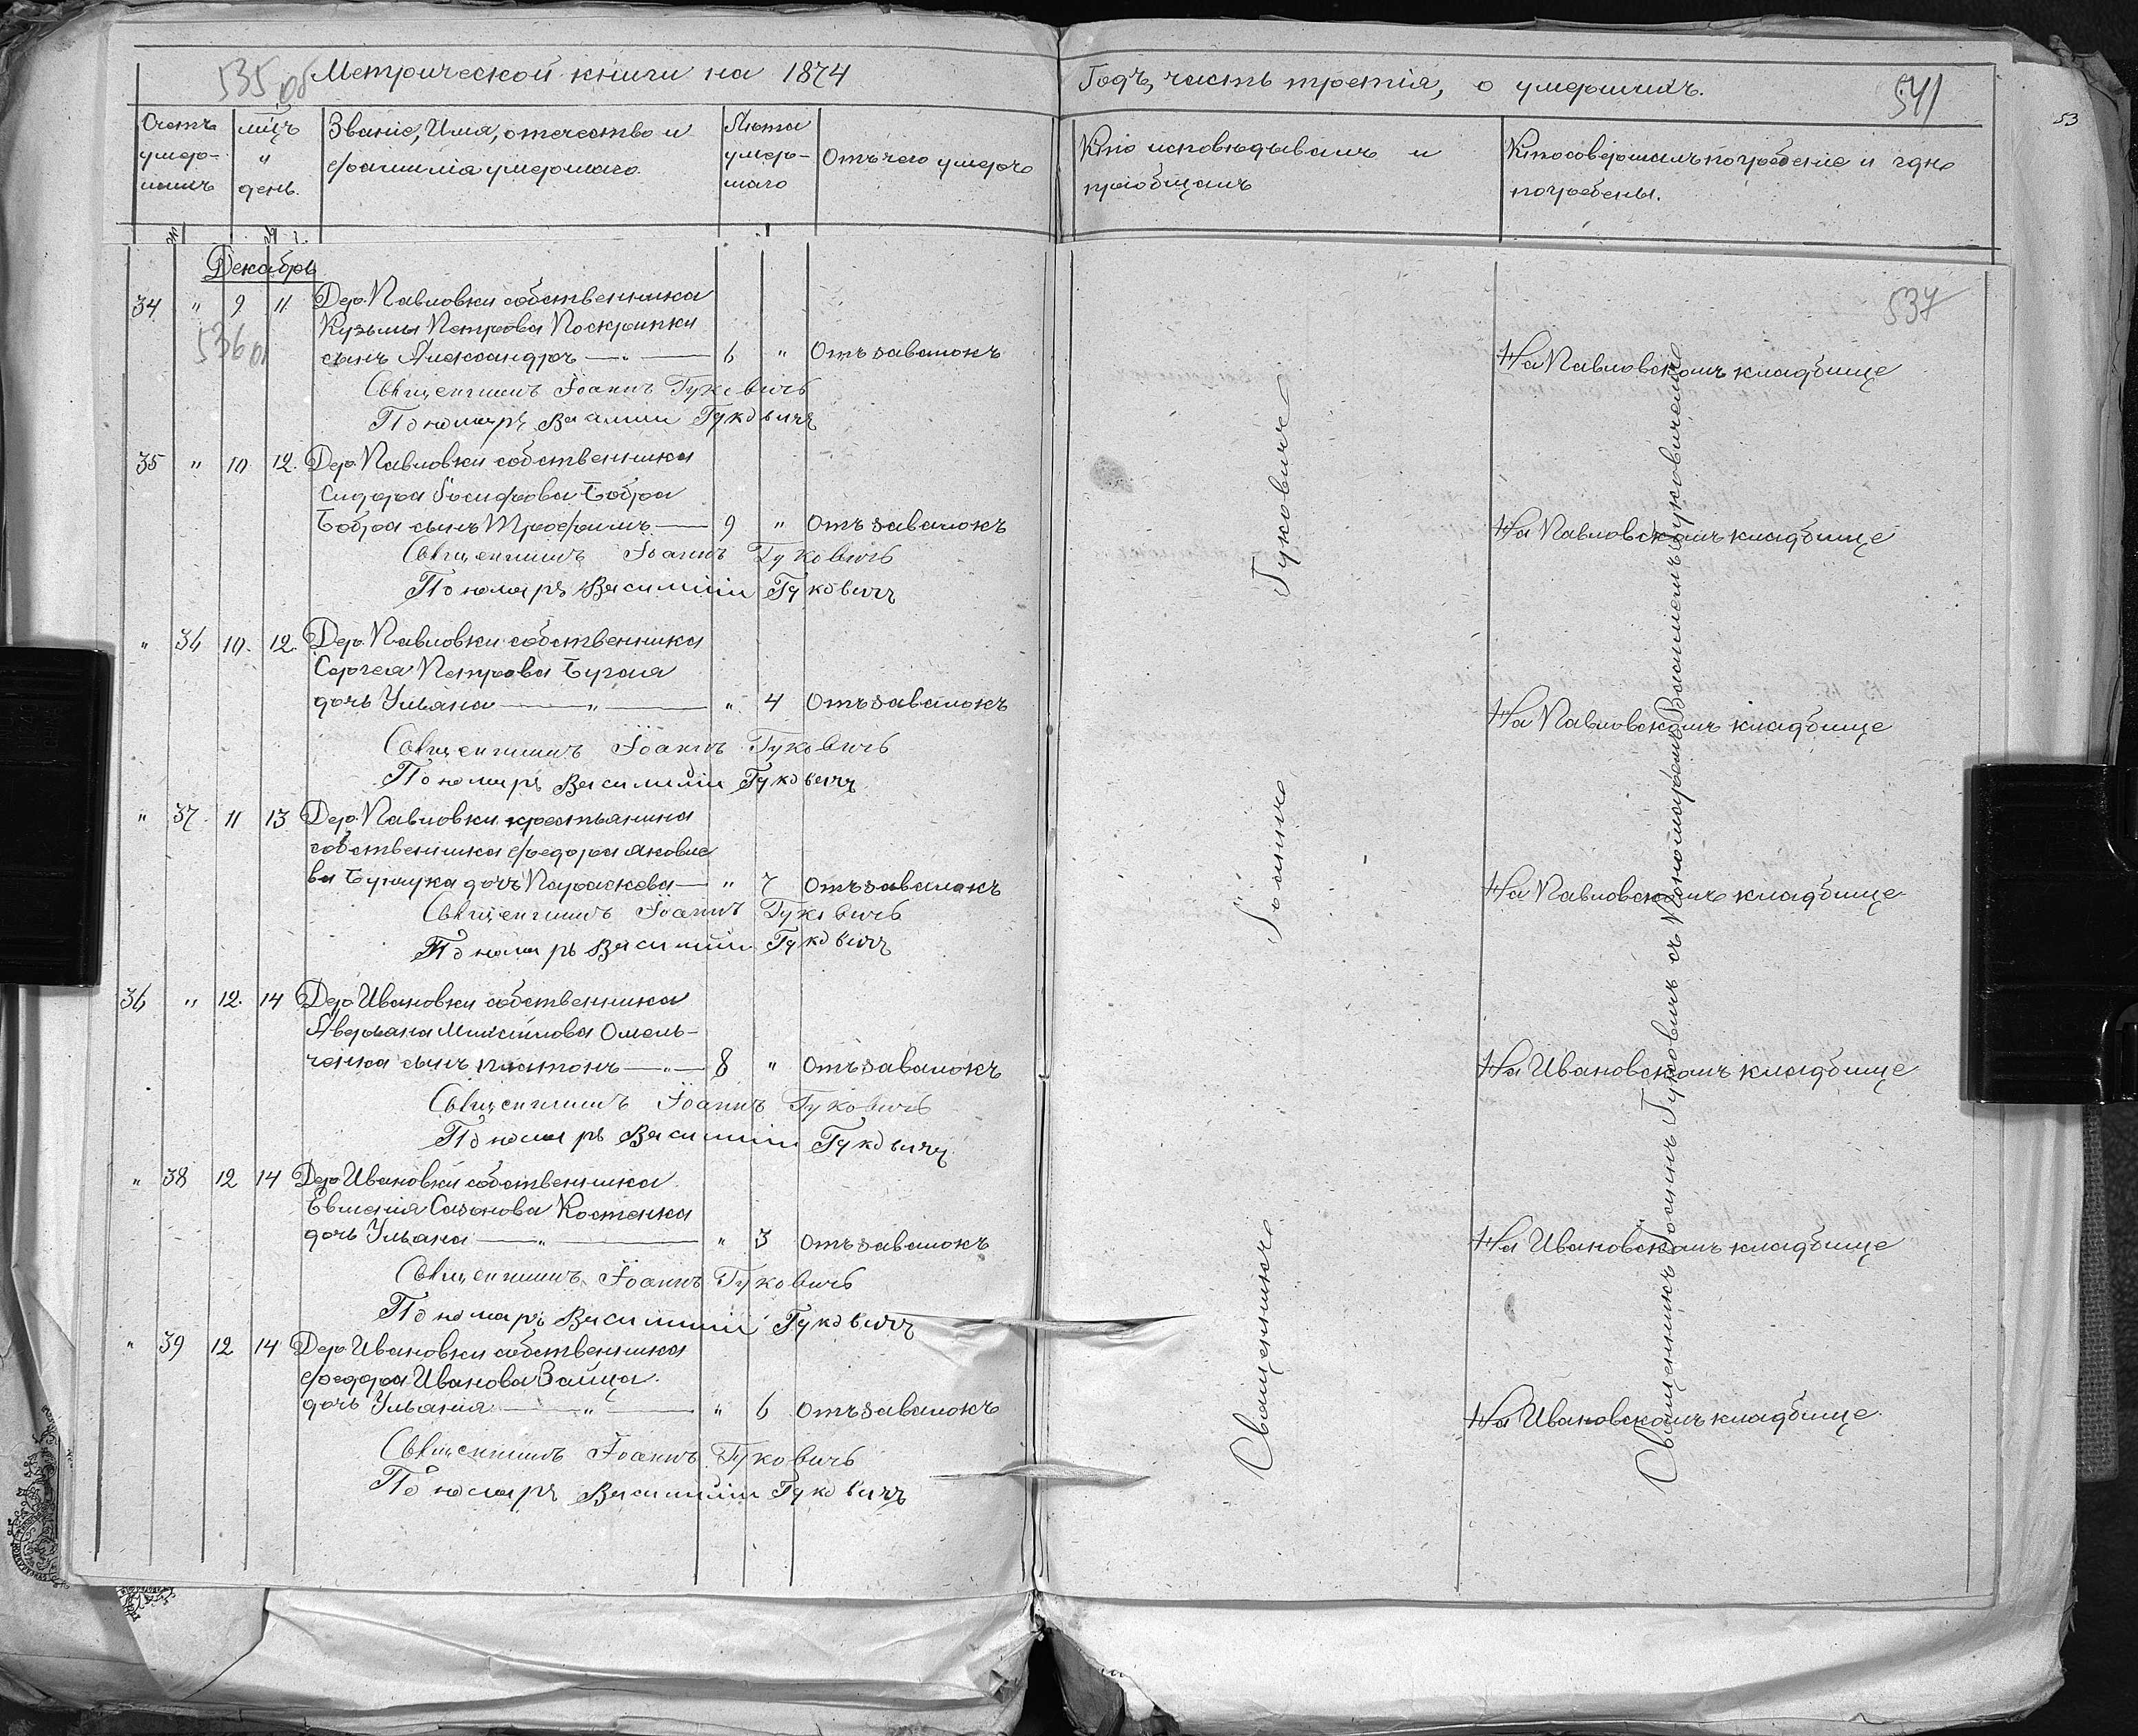 535 об Метрической книги на 1874
Годъ, часть третія, о умершихъ.
541
53
Счетъ умер-шихъ
мѣсяцъ и день.
Званіе, Имя, отечество и фамилія умершаго.
Лѣта умер-шаго
Отъ чего умеръ
Кто исповѣдывалъ и пріобщалъ
Кто совершалъ погребеніе и гдѣ погребены.
Декабрь
537
34 " 9 11 Дер. Павловки собственника
Кузьмы Петрова Поскрипки
536 об
сынъ Александръ — " — 6 " Отъ завалокъ
На Павловскомъ кладбище
Священникъ Іоаннъ Гуковичъ
Пономарь Василий Гуковичъ
35 " 10 12. Дер. Павловки собственника
Сидора Іосифова Бобра
Бобра сынъ Трофимъ — 9 " Отъ завалокъ
На Павловскомъ кладбище
Священникъ Іоаннъ Гуковичъ
Пономарь Василий Гуковичъ
" 36 10. 12. Дер. Павловки собственника
Сергея Петрова Бугая
дочь Ульяна — " — " 4 Отъ завалокъ
На Павловскомъ кладбище
Священникъ Іоаннъ Гуковичъ
Пономарь Василий Гуковичъ
" 37 11 13 Дер. Павловки крестьянина
собственника Федора Яковле
ва дочь Параскева — " 7 Отъ завалокъ
На Павловскомъ кладбище
Священникъ Іоаннъ Гуковичъ
Пономарь Василий Гуковичъ
36 " 12. 14 Дер. Ивановки собственника
Аверьяна Михайлова Омель-
ченка сынъ Платонъ — " — 8 " Отъ завалокъ
На Ивановскомъ кладбище
Священникъ Іоаннъ Гуковичъ
Пономарь Василий Гуковичъ
" 38 12 14 Дер. Ивановки собственника
Евмения Сазонова Костенка
дочь Ульяна — " — " 3 Отъ завалокъ
На Ивановскомъ кладбище
Священникъ Іоаннъ Гуковичъ
Пономарь Василий Гуковичъ
" 39 12 14 Дер. Ивановки собственника
Федора Иванова Зайца
дочь Ульянія — " — " 6 Отъ завалокъ
На Ивановскомъ кладбище.
Священникъ Іоаннъ Гуковичъ
Пономарь Василий Гуковичъ
Священникъ Іоаннъ Гуковичъ
Священникъ Іоаннъ Гуковичъ съ Пономаремъ Василиемъ Гуковичемъ